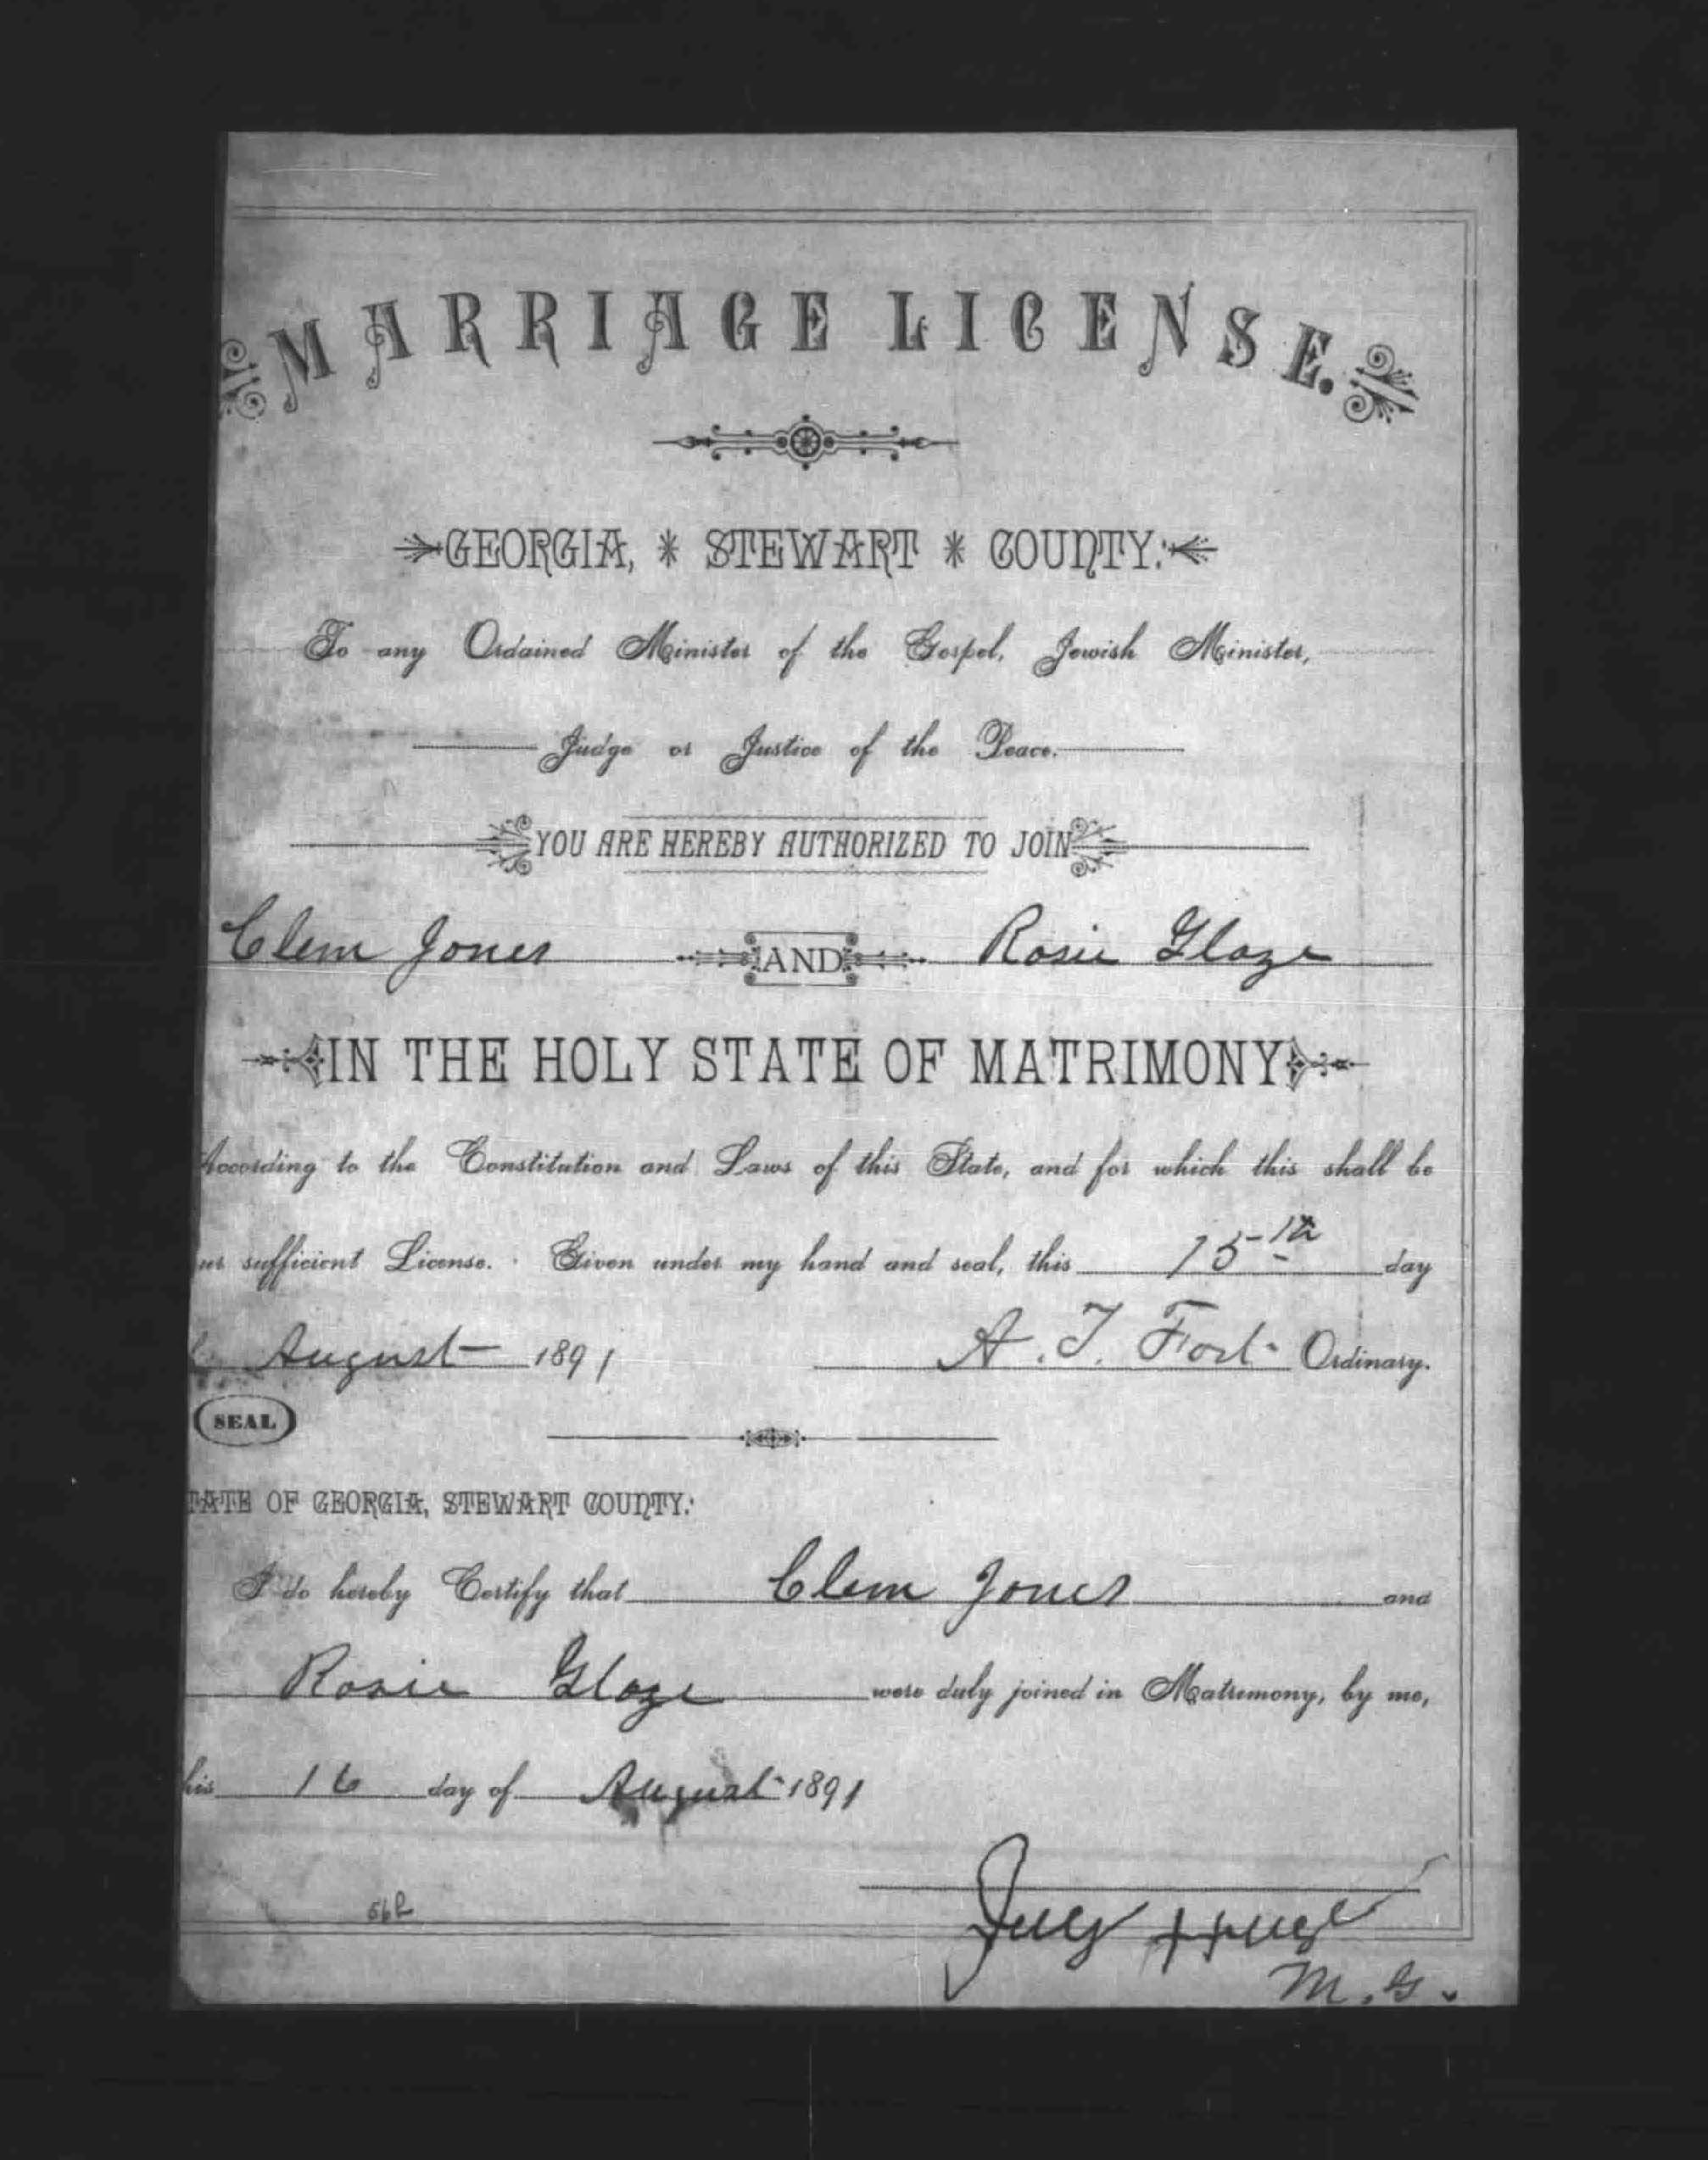 MARRIAGE LICENSE.
GEORGIA, * STEWART * COUNTY:
To any Ordained Minister of the Gospel, Jewish Minister,
Judge or Justice of the Peace.
YOU ARE HEREBY AUTHORIZED TO JOIN
Clem Jones AND Rosie Glaze
IN THE HOLY STATE OF MATRIMONY
According to the Constitution and Laws of this State, and for which this shall be
sufficient License. Given under my hand and seal, this 15th day
August 1891 A. T. Fort Ordinary.
SEAL
TATE OF GEORGIA, STEWART COUNTY:
I do hereby Certify that Clem Jones and
Rosie Glaze were duly joined in Matrimony, by me,
his 16 day of August 1891
M. G.